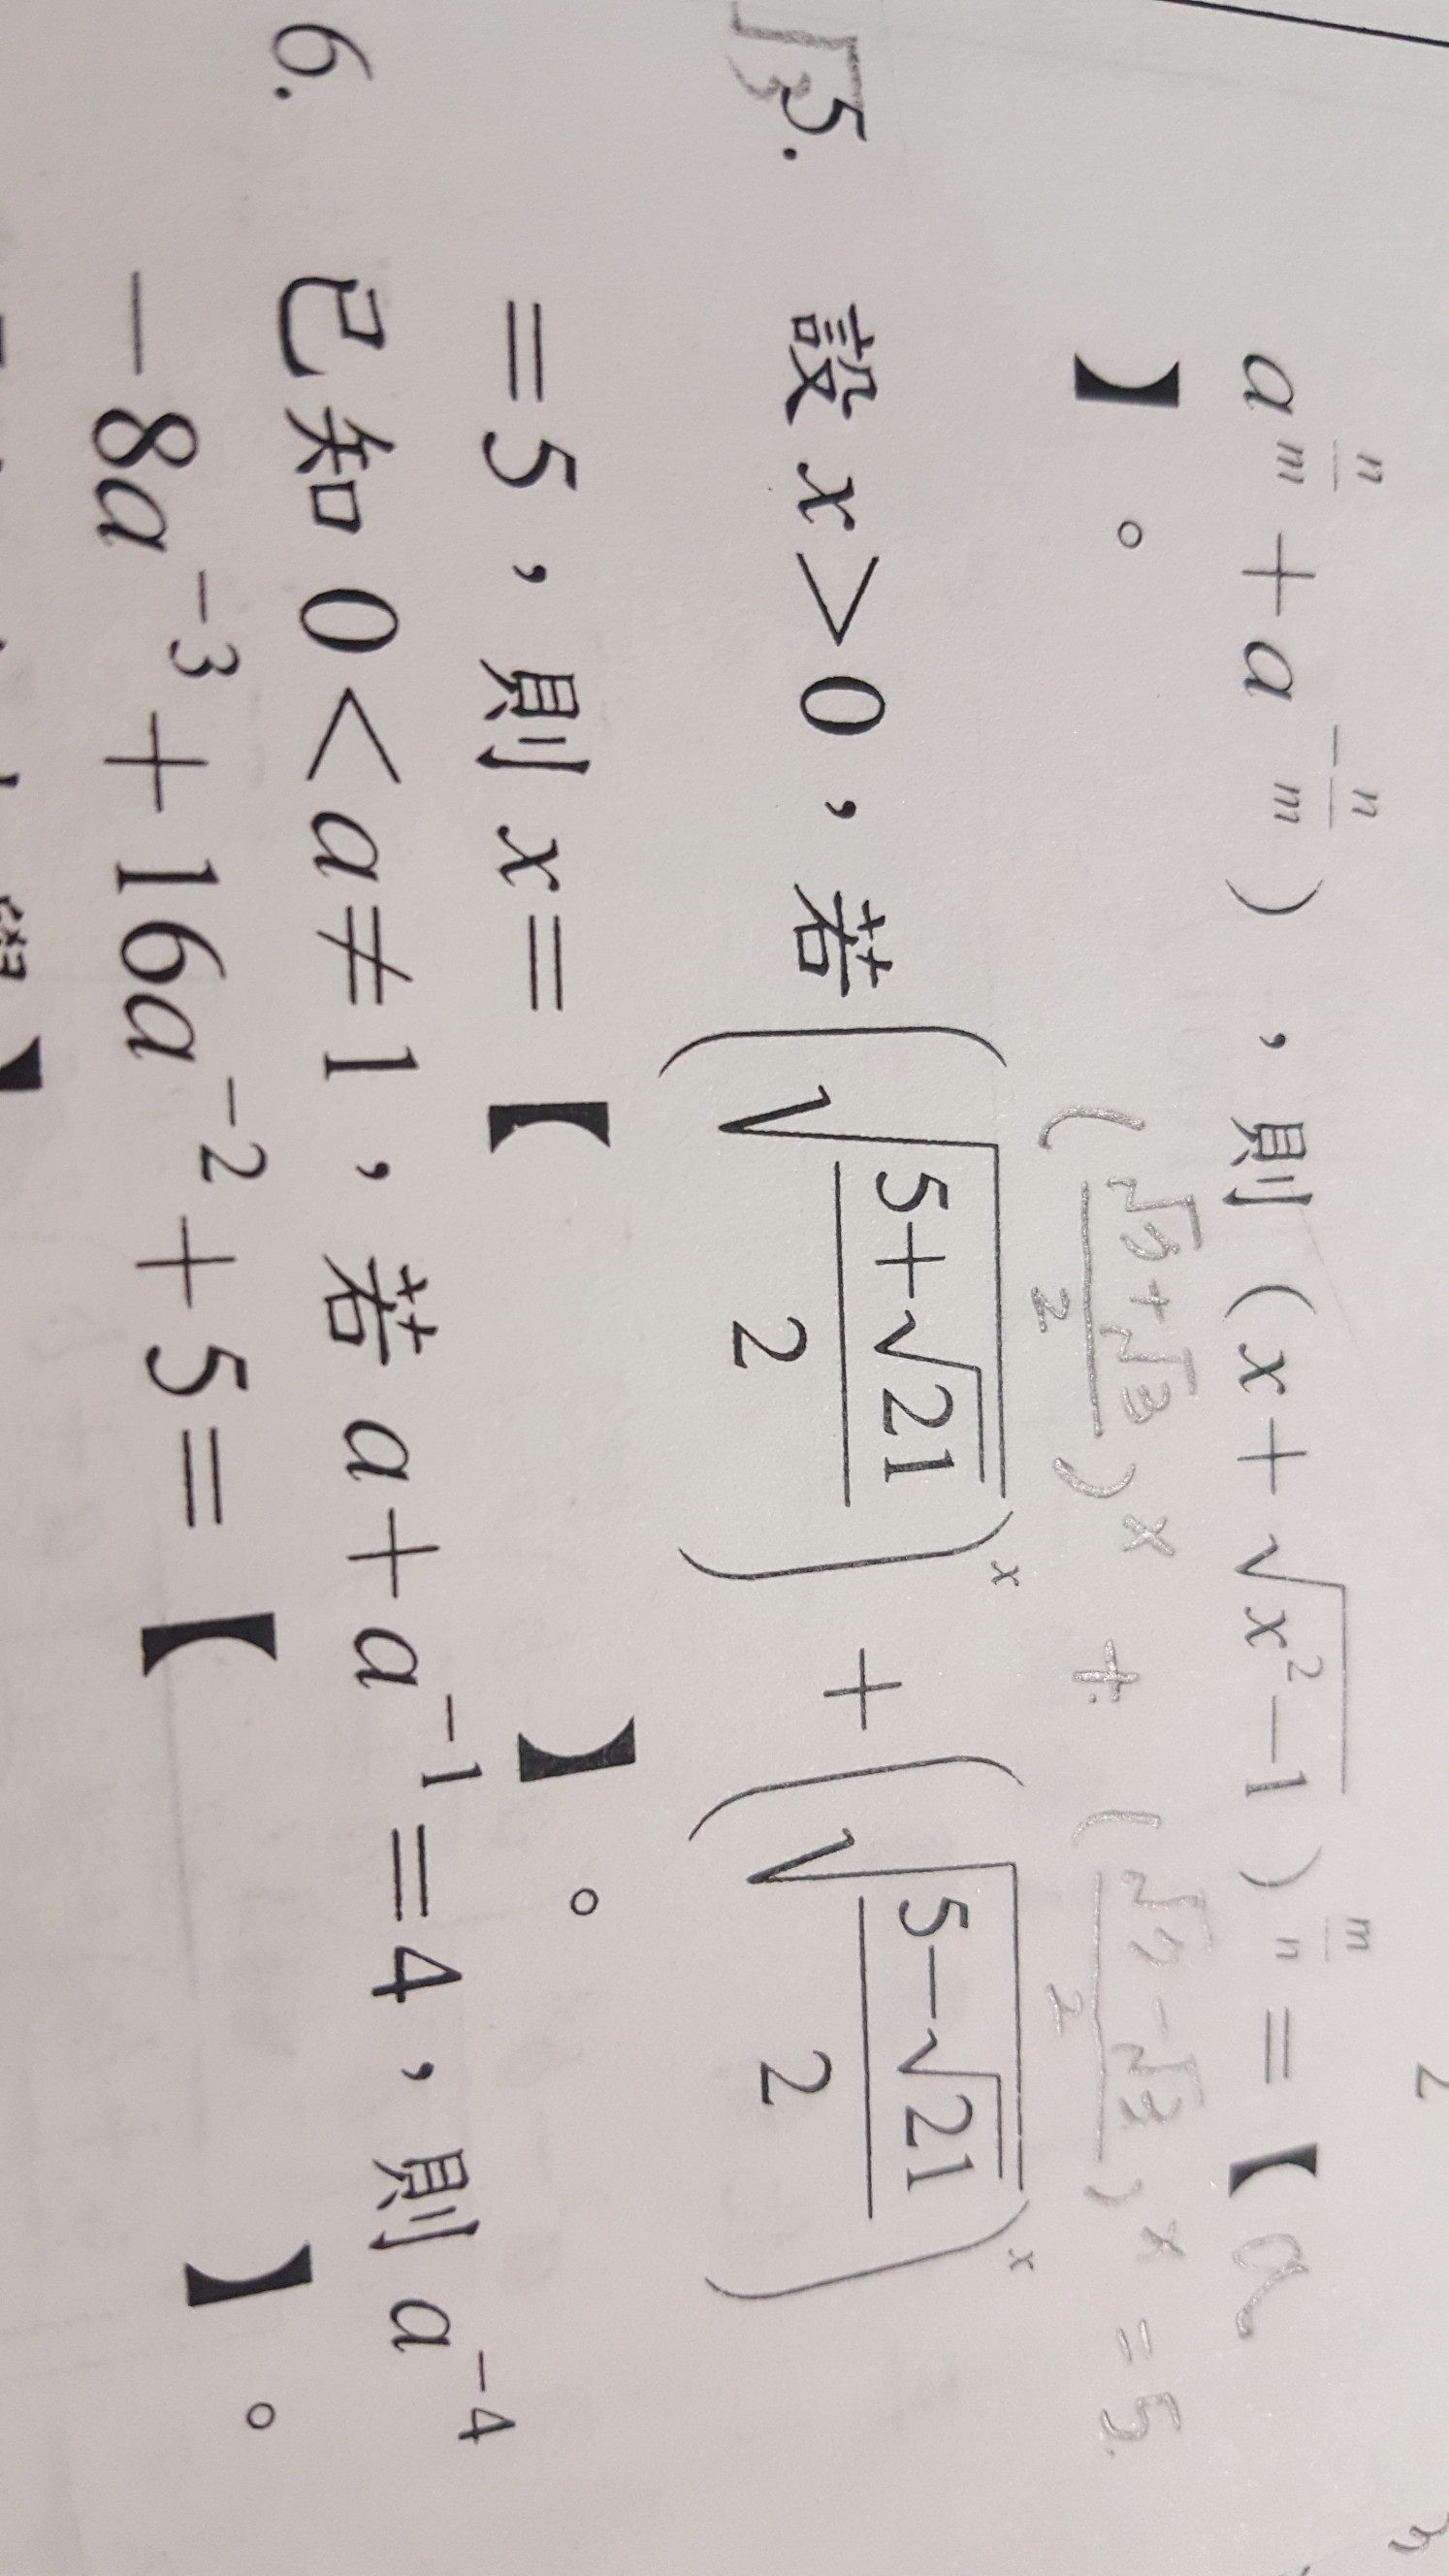 a^{\frac{n}{m}} + a^{-\frac{n}{m}}），則（x+\sqrt{x^2-1}）^{\frac{m}{n}} =【 a
】。
(\frac{\sqrt{7}+\sqrt{3}}{2})^x + (\frac{\sqrt{7}-\sqrt{3}}{2})^x = 5
5. 設 x>0，若 \left(\sqrt{\frac{5+\sqrt{21}}{2}}\right)^x + \left(\sqrt{\frac{5-\sqrt{21}}{2}}\right)^x
=5，則 x=【 】。
6. 已知 0<a≠1，若 a+a^{-1}=4，則 a^{-4}
-8a^{-3}+16a^{-2}+5=【 】。